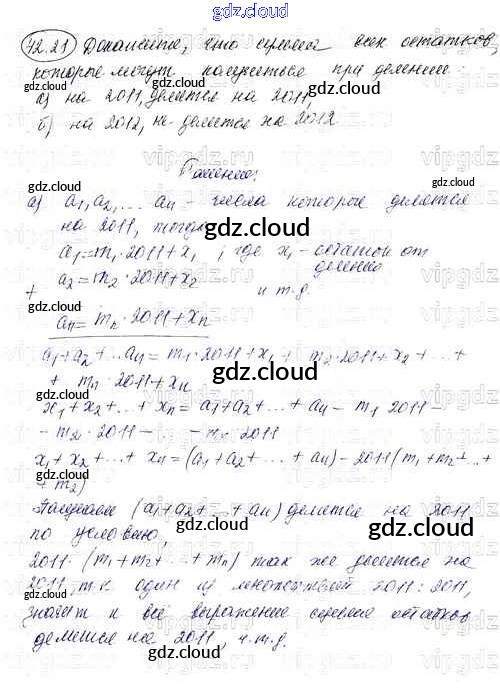 gdz.cloud
42.21 Докажите, что сумма всех остатков,
которые могут получиться при делении:
а) на 2011, делится на 2011;
б) на 2012, не делится на 2012.
Решение:
а) a1, a2, ... an - числа которые делятся
на 2011, тогда
a1 = m1 · 2011 + x1 ; где x1 - остаток от
деления
+ a2 = m2 · 2011 + x2 и т.д.
an = mn · 2011 + xn
a1 + a2 + ... an = m1 · 2011 + x1 + m2 · 2011 + x2 + ... +
+ mn · 2011 + xn
x1 + x2 + ... + xn = a1 + a2 + ... + an - m1 2011 -
- m2 · 2011 - ... - mn · 2011
x1 + x2 + ... + xn = (a1 + a2 + ... + an) - 2011 (m1 + m2 + ... +
+ m2)
(a1 + a2 + ... + an) делится на 2011
по условию,
2011 · (m1 + m2 + ... + mn) так же делится на
2011, т.к один из множителей 2011 : 2011,
значит и все выражение сумма остатков
делится на 2011, ч.т.д.